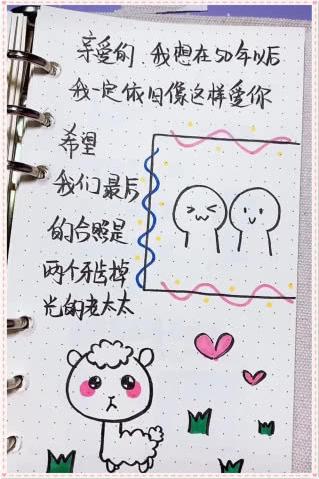 亲爱的，我想在50年以后
我一定依旧像这样爱你
希望
我们最后
的合照是
两个牙齿掉
光的老太太